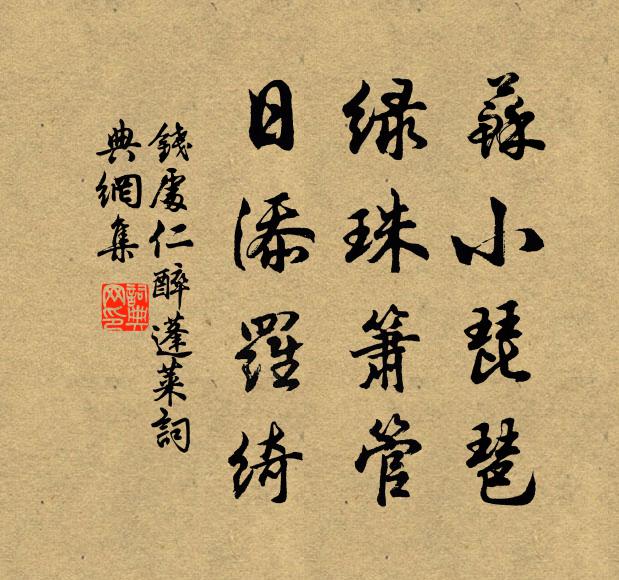 蘇小琵琶
綠珠簫管
日添羅綺
錢處仁醉蓬萊詞
典網集
詞典网印